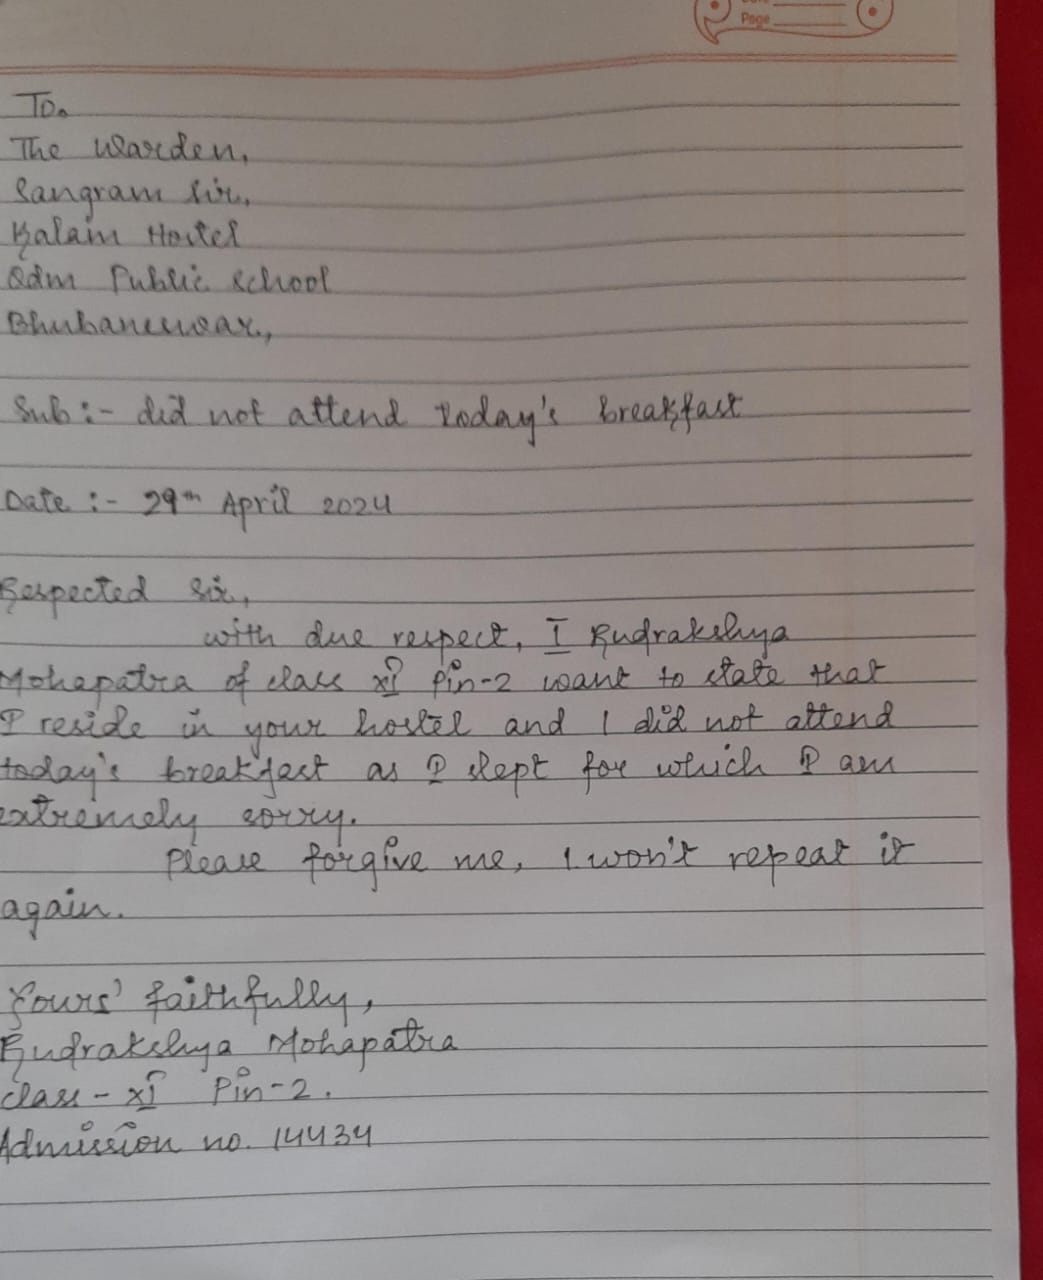 Page
To.
The Warden,
Sangram Sir,
Kalam Hostel
Odm Public School
Bhubaneswar,
Sub :- did not attend today's breakfast
Date :- 29th April 2024
Respected Sir,
with due respect, I Rudrakshya
Mohapatra of class XI Pin-2 want to state that
I reside in your hostel and I did not attend
today's breakfast as I slept for which I am
extremely sorry.
Please forgive me, I won't repeat it
again.
Yours' faithfully,
Rudrakshya Mohapatra
class - XI Pin-2.
Admission no. 14434